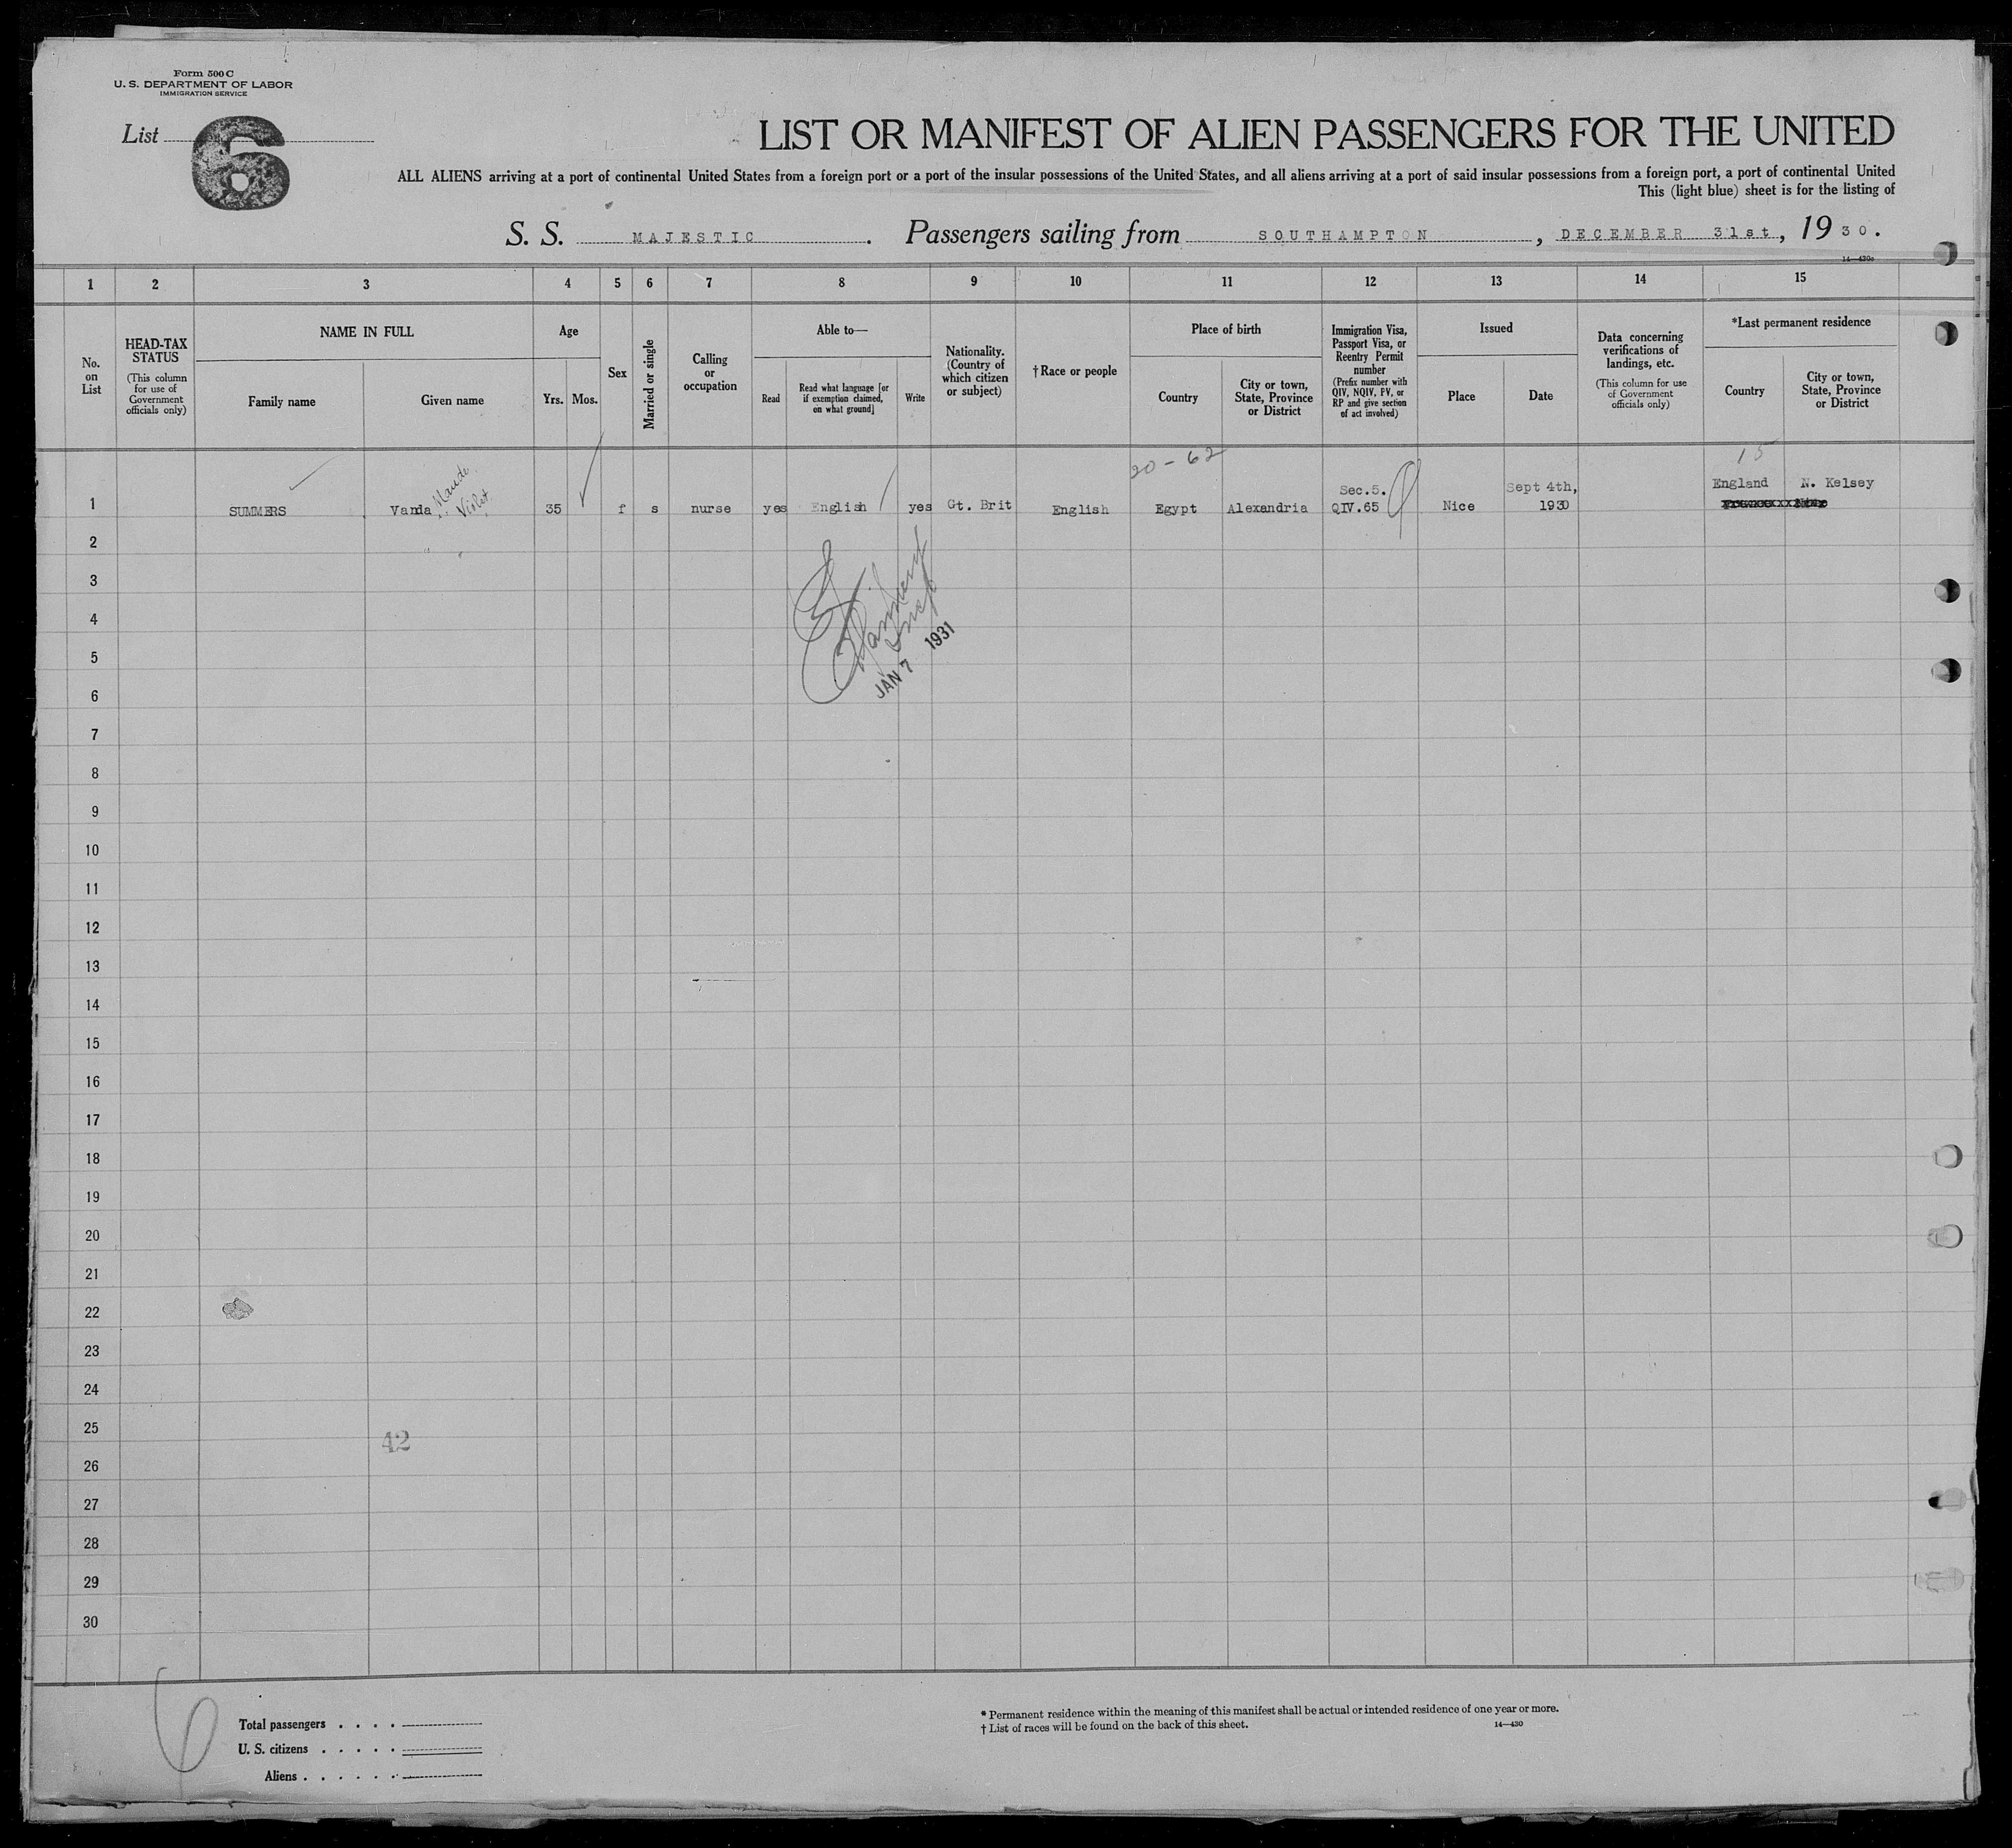 Form 500 C
U. S. DEPARTMENT OF LABOR
IMMIGRATION SERVICE
List 6
LIST OR MANIFEST OF ALIEN PASSENGERS FOR THE UNITED
ALL ALIENS arriving at a port of continental United States from a foreign port or a port of the insular possessions of the United States, and all aliens arriving at a port of said insular possessions from a foreign port, a port of continental United
This (light blue) sheet is for the listing of
S. S. MAJESTIC. Passengers sailing from SOUTHAMPTON, DECEMBER 31st, 1930.
14—430c
1 2 3 4 5 6 7 8 9 10 11 12 13 14 15
No. on List
HEAD-TAX STATUS
(This column for use of Government officials only)
NAME IN FULL
Family name
Given name
Age
Yrs. Mos.
Sex
Married or single
Calling or occupation
Able to—
Read
Read what language [or if exemption claimed, on what ground]
Write
Nationality. (Country of which citizen or subject)
†Race or people
Place of birth
Country
City or town, State, Province or District
Immigration Visa, Passport Visa, or Reentry Permit number
(Prefix number with QIV, NQIV, FV, or RP and give section of act involved)
Issued
Place
Date
Data concerning verifications of landings, etc.
(This column for use of Government officials only)
*Last permanent residence
Country
City or town, State, Province or District
20-62
15
1 SUMMERS Vanda Maude Violet 35 f s nurse yes English yes Gt. Brit English Egypt Alexandria Sec.5. QIV.65 Nice Sept 4th, 1930 England N. Kelsey
2
3
4
5
JAN 7 1931
6
7
8
9
10
11
12
13
14
15
16
17
18
19
20
21
22
23
24
25
42
26
27
28
29
30
6
Total passengers . . . .
U. S. citizens . . . . .
Aliens . . . . . .
* Permanent residence within the meaning of this manifest shall be actual or intended residence of one year or more.
† List of races will be found on the back of this sheet.
14—430